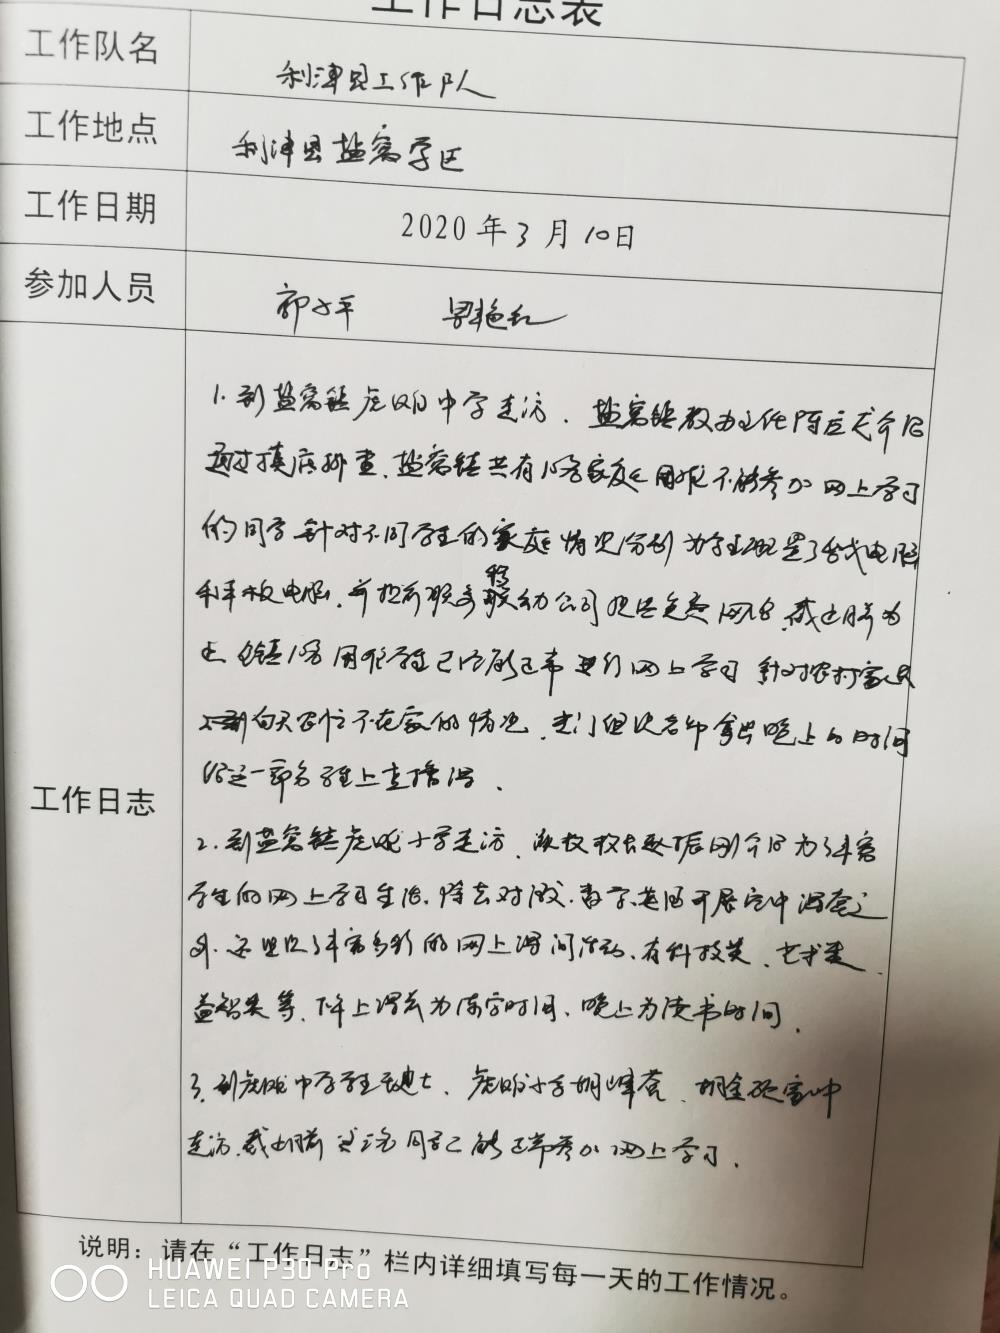 工作日志表
工作队名
利津县工作队
工作地点
利津县盐窝学区
工作日期
2020年3月10日
参加人员
郭 平 梁艳红
工作日志
1.到盐窝镇虎滩中学走访.盐窝镇教办主任陈 介绍
通过摸底排查.盐窝镇共有18名家庭困难不能参加网上学习
的同学针对不同学生的家庭情况分别为学生配置了台式电脑
和平板电脑.并提前联系移动公司提供免费网络.截止目前为
止 全镇18名困难学生已全部正常进行网上学习 针对农村家长
白天农忙不在家的情况. 老师拿出晚上的时间
给这一部分学生上直播课.
2.到盐窝镇虎滩小学走访.该校校长赵振刚介绍为了丰富
学生的网上学习生活.除去对语文.数学.英语开展空中课堂之
外.还组织了丰富多彩的网上课间活动.有科技类.艺术类.
益智类等.下午上课前为练字时间.晚上为读书时间.
3.到虎滩中学学生 .虎滩小学胡峰 .胡金 家中
走访.截止目前 同学已能正常参加网上学习.
说明：请在“工作日志”栏内详细填写每一天的工作情况。
HUAWEI P30 Pro
LEICA QUAD CAMERA